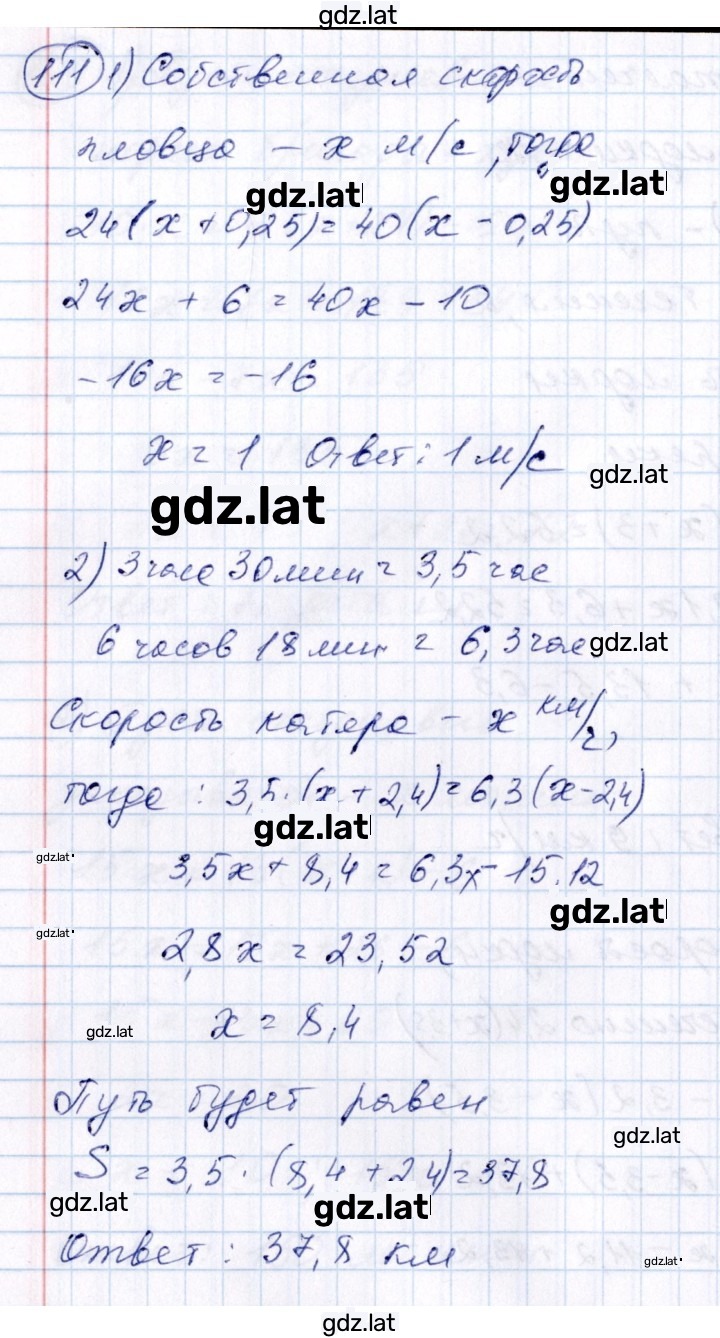 gdz.lat
111 1) Собственная скорость
пловца – x м/с, тогда
gdz.lat gdz.lat
24(x + 0,25) = 40(x – 0,25)
24x + 6 = 40x – 10
–16x = –16
x = 1 Ответ: 1 м/с
gdz.lat
gdz.lat
2) 3 часа 30 мин = 3,5 час
6 часов 18 мин = 6,3 час
gdz.lat
Скорость катера – x км/ч,
тогда: 3,5·(x + 2,4) = 6,3(x – 2,4)
gdz.lat
gdz.lat
3,5x + 8,4 = 6,3x – 15,12
gdz.lat
gdz.lat
2,8x = 23,52
gdz.lat
x = 8,4
Путь будет равен
gdz.lat
S = 3,5·(8,4 + 2,4) = 37,8
gdz.lat gdz.lat
Ответ: 37,8 км
gdz.lat
gdz.lat